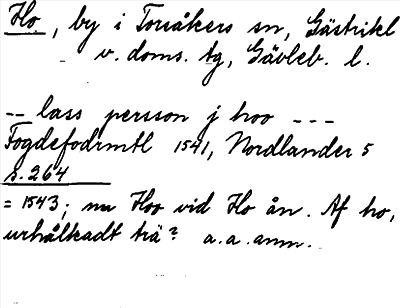 Ho, by i Torsåkers sn, Gästrikl
v. doms. tg, Gävleb. l.
-- lass persson j hoo ---
Fogdefodrmtl 1541, Nordlander 5
s. 264
= 1543; nu Hoo vid Ho ån. Af ho,
urhålkadt trä? a. a. anm.